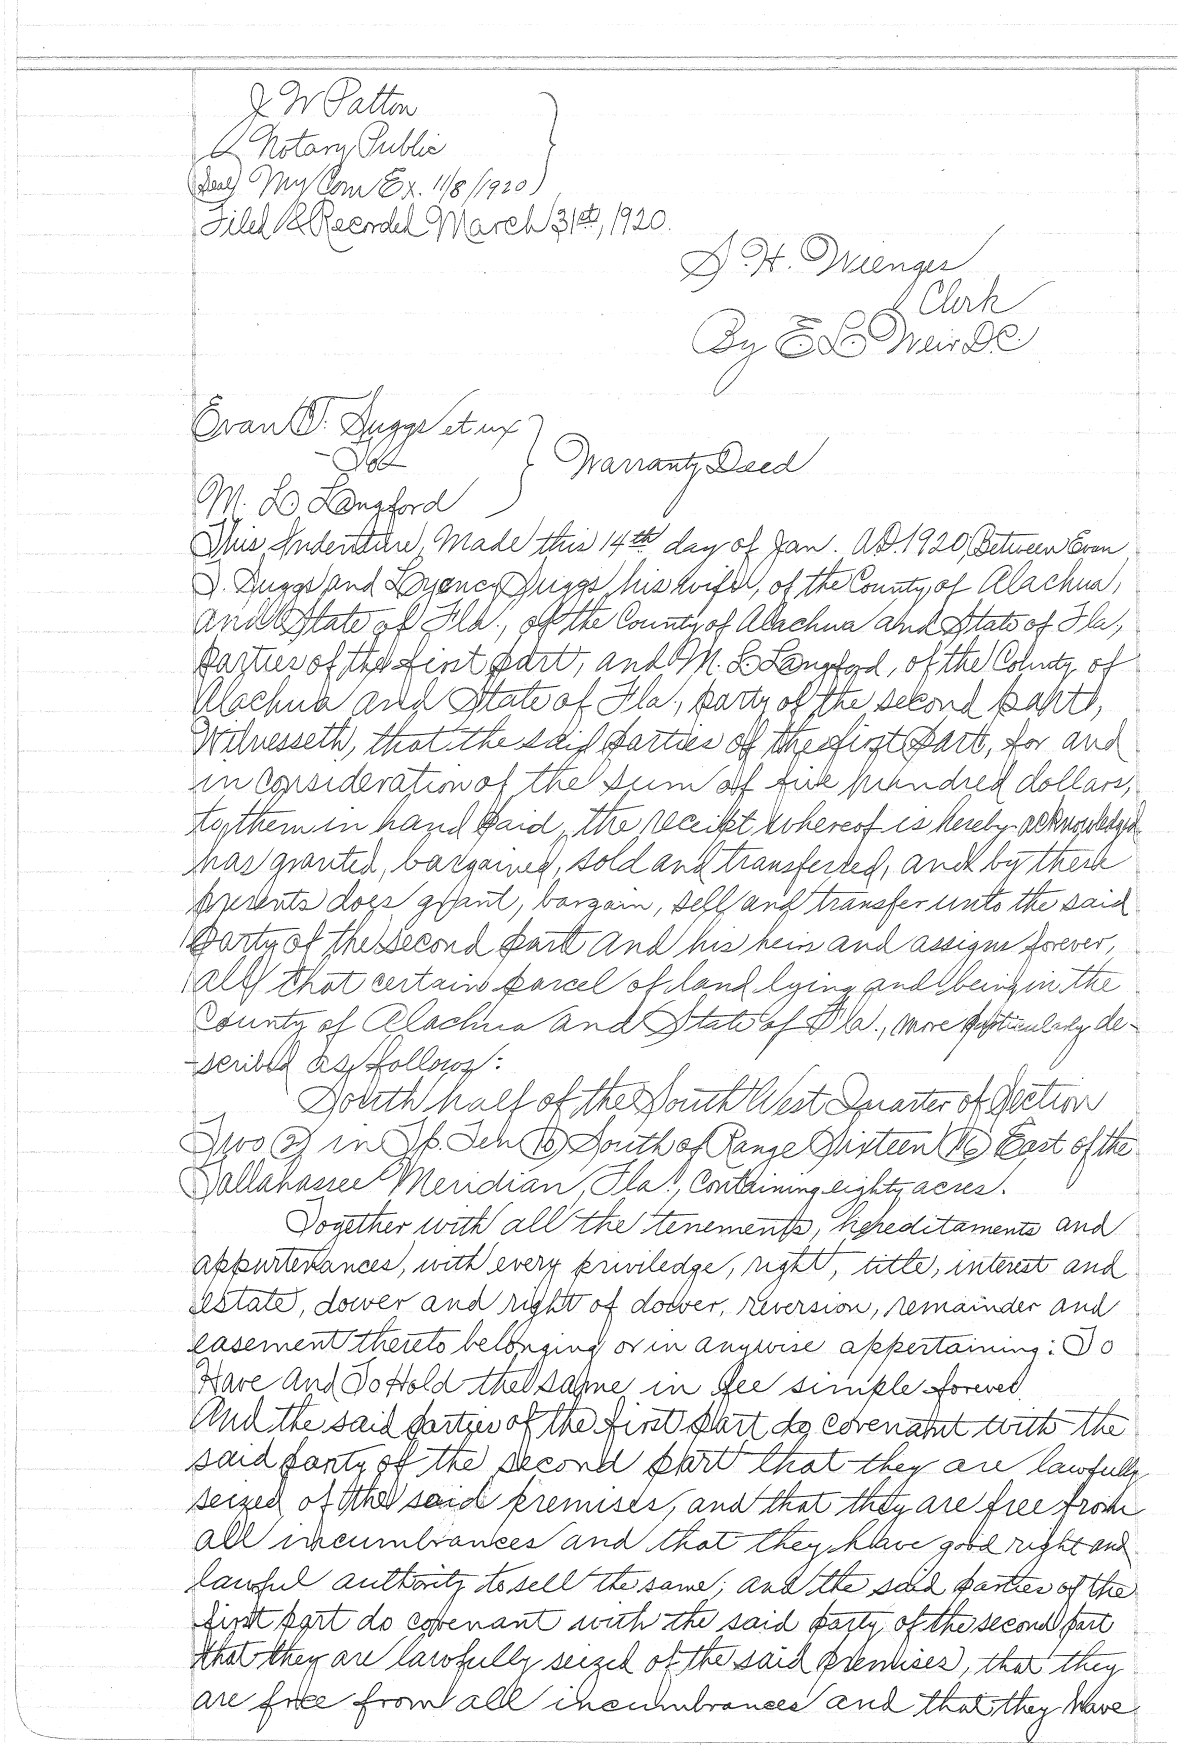 J W Patton
Notary Public
(Seal) My Com Ex. 11/8/1920)
Filed & Recorded March 31st, 1920.
S. H. Wienges
Clerk
By E L Weir D.C.
Evan T. Suggs et ux
-To-
Warranty Deed
M. L. Langford
This Indenture, Made this 14th day of Jan. A.D. 1920, Between Evan
T. Suggs and Suggs, his wife, of the County of Alachua,
and State of Fla., of the County of Alachua and State of Fla,
parties of the first part, and M. L. Langford, of the County of
Alachua and State of Fla., party of the second part,
Witnesseth, that the said parties of the first part, for and
in consideration of the sum of five hundred dollars,
to them in hand paid, the receipt whereof is hereby acknowledged
has granted, bargained, sold and transferred, and by these
presents does grant, bargain, sell and transfer unto the said
party of the second part and his heirs and assigns forever,
all that certain parcel of land lying and being in the
County of Alachua and State of Fla., more particularly de-
-scribed as follows:
South half of the South West Quarter of Section
Two (2) in Tp. Ten (10) South of Range Sixteen (16) East of the
Tallahassee Meridian, Fla., Containing eighty acres.
Together with all the tenements, hereditaments and
appurtenances, with every priviledge, right, title, interest and
estate, dower and right of dower, reversion, remainder and
easement thereto belonging or in anywise appertaining: To
Have and To Hold the same in fee simple forever.
And the said parties of the first part do covenant with the
said party of the second part that they are lawfully
seized of the said premises, and that they are free from
all incumbrances and that they have good right and
lawful authority to sell the same; and the said parties of the
first part do covenant with the said party of the second part
that they are lawfully seized of the said premises, that they
are free from all incumbrances and that they have